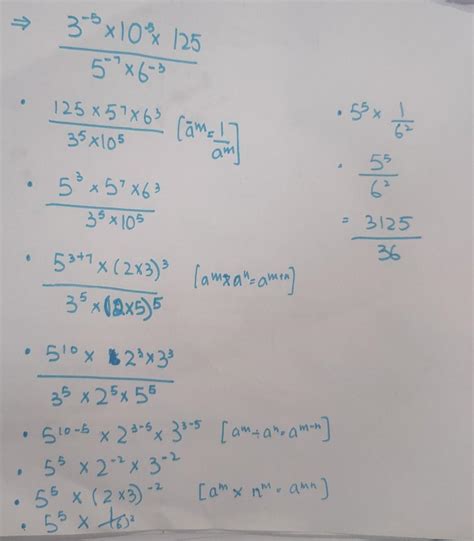 ⇒ 3⁻⁵ × 10⁻⁵ × 125
5⁻⁷ × 6⁻³
• 125 × 5⁷ × 6³
3⁵ × 10⁵
[a⁻ᵐ = 1/aᵐ]
• 5³ × 5⁷ × 6³
3⁵ × 10⁵
• 5³⁺⁷ × (2×3)³
3⁵ × (2×5)⁵
[aᵐ × aⁿ = aᵐ⁺ⁿ]
• 5¹⁰ × 2³ × 3³
3⁵ × 2⁵ × 5⁵
• 5¹⁰⁻⁵ × 2³⁻⁵ × 3³⁻⁵ [aᵐ ÷ aⁿ = aᵐ⁻ⁿ]
• 5⁵ × 2⁻² × 3⁻²
• 5⁵ × (2×3)⁻² [aᵐ × nᵐ = aᵐⁿ]
• 5⁵ ×
• 5⁵ × 1/6²
= 5⁵/6²
= 3125/36